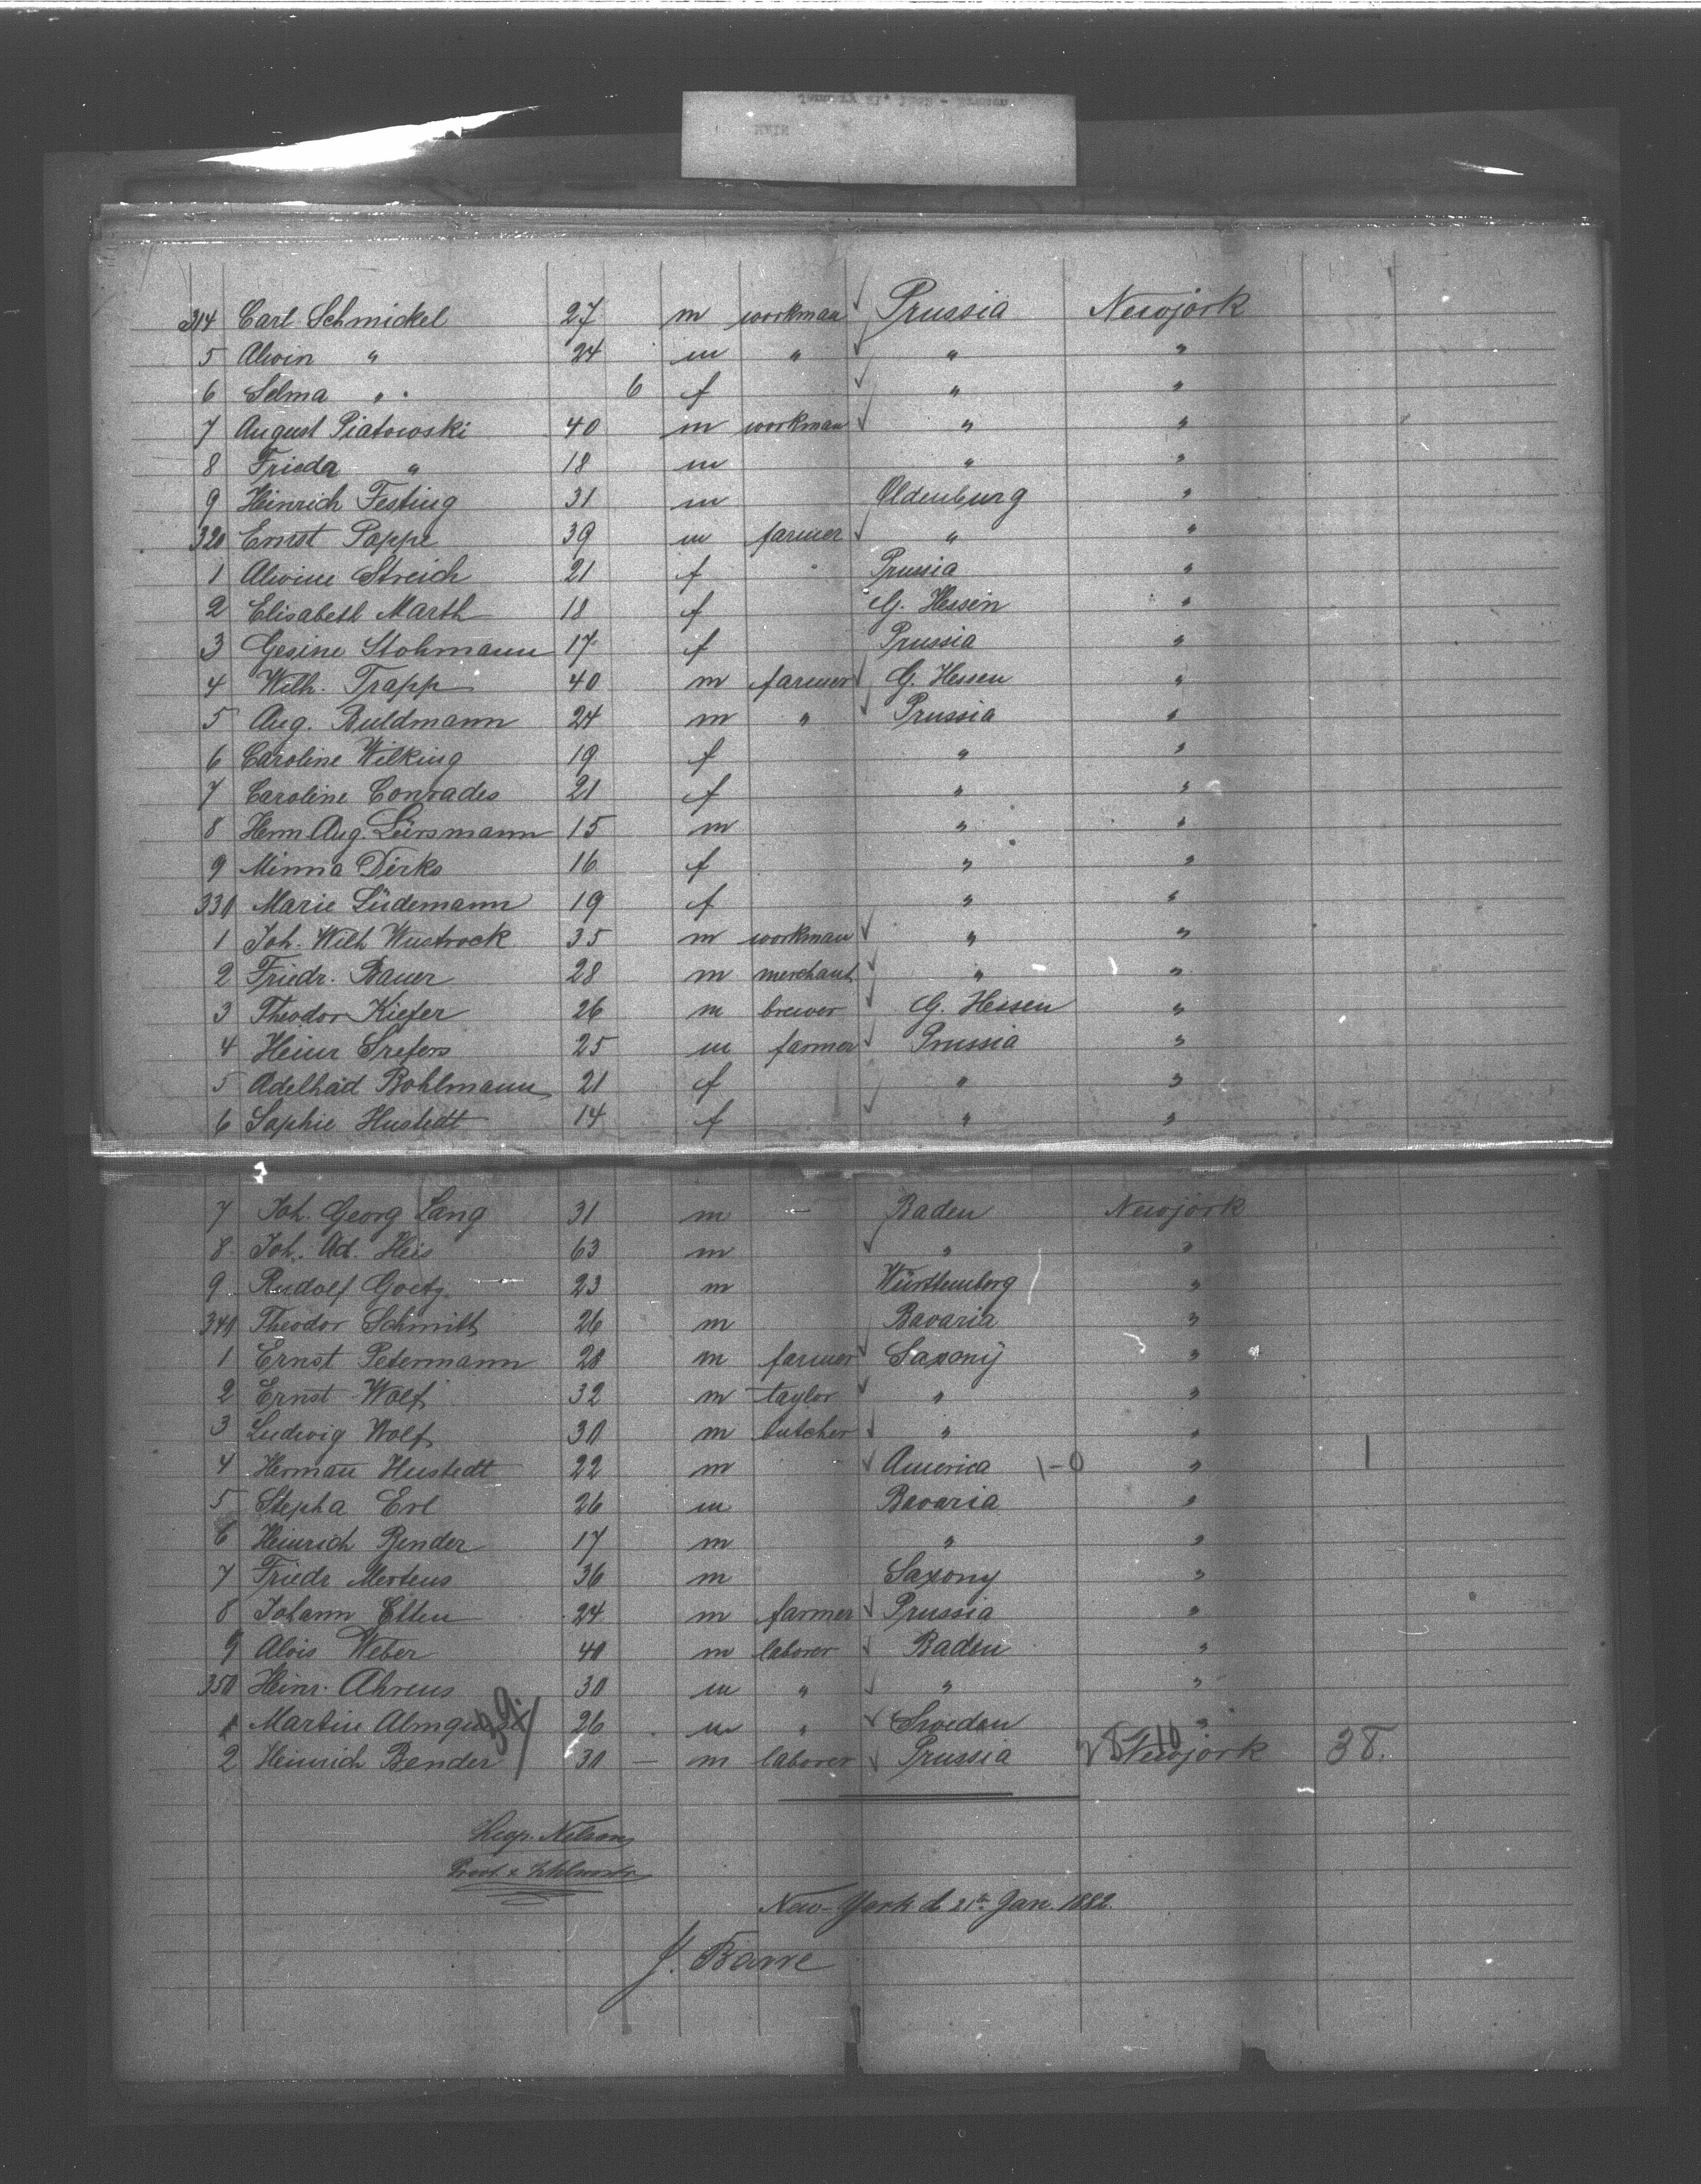 314 Carl Schmickel 27 m workman Prussia Newjork
5 Alwin " 24 m " " "
6 Selma " 6 f " "
7 August Piatowski 40 m workman " "
8 Frieda " 18 m " "
9 Heinrich Festing 31 m Oldenburg "
320 Ernst Pappe 39 m farmer " "
1 Alwine Streich 21 f Prussia "
2 Elisabeth Marth 18 f G. Hessen "
3 Gesine Stohmann 17 f Prussia "
4 Wilh. Trapp 40 m farmer G. Hessen "
5 Aug. Buldmann 24 m " Prussia "
6 Caroline Wilking 19 f " "
7 Caroline Conrades 21 f " "
8 Herm. Aug. Lürsmann 15 m " "
9 Minna Dirks 16 f " "
330 Marie Lüdemann 19 f " "
1 Joh. Wilh Wustrock 35 m workman " "
2 Friedr. Bauer 28 m merchant " "
3 Theodor Kiefer 26 m brewer G. Hessen "
4 Heinr 25 m farmer Prussia "
5 Adelhaid Bohlmann 21 f " "
6 Sophie Hustedt 14 f " "
7 Joh. Georg Lang 31 m — Baden Newjork
8 Joh. Ad. Heis 63 m " "
9 Rudolf Goetz 23 m Württemberg "
340 Theodor Schmitt 26 m Bavaria "
1 Ernst Petermann 28 m farmer Saxony "
2 Ernst Wolf 32 m taylor " "
3 Ludwig Wolf 30 m butcher " "
4 Herman Hustedt 22 m America 1-0 " 1
5 Stepha Erl 26 m Bavaria "
6 Heinrich Bender 17 m " "
7 Friedr Mertens 36 m Saxony "
8 Johann Etten 24 m farmer Prussia "
9 Alois Weber 40 m laborer Baden "
350 Heinr. Ahrens 30 m " " "
1 Martin Almquist 26 m " Sweden "
2 Heinrich Bender 30 — m laborer Prussia Newjork 38.
New-York d. 21th Jan. 1882.
J. Barre